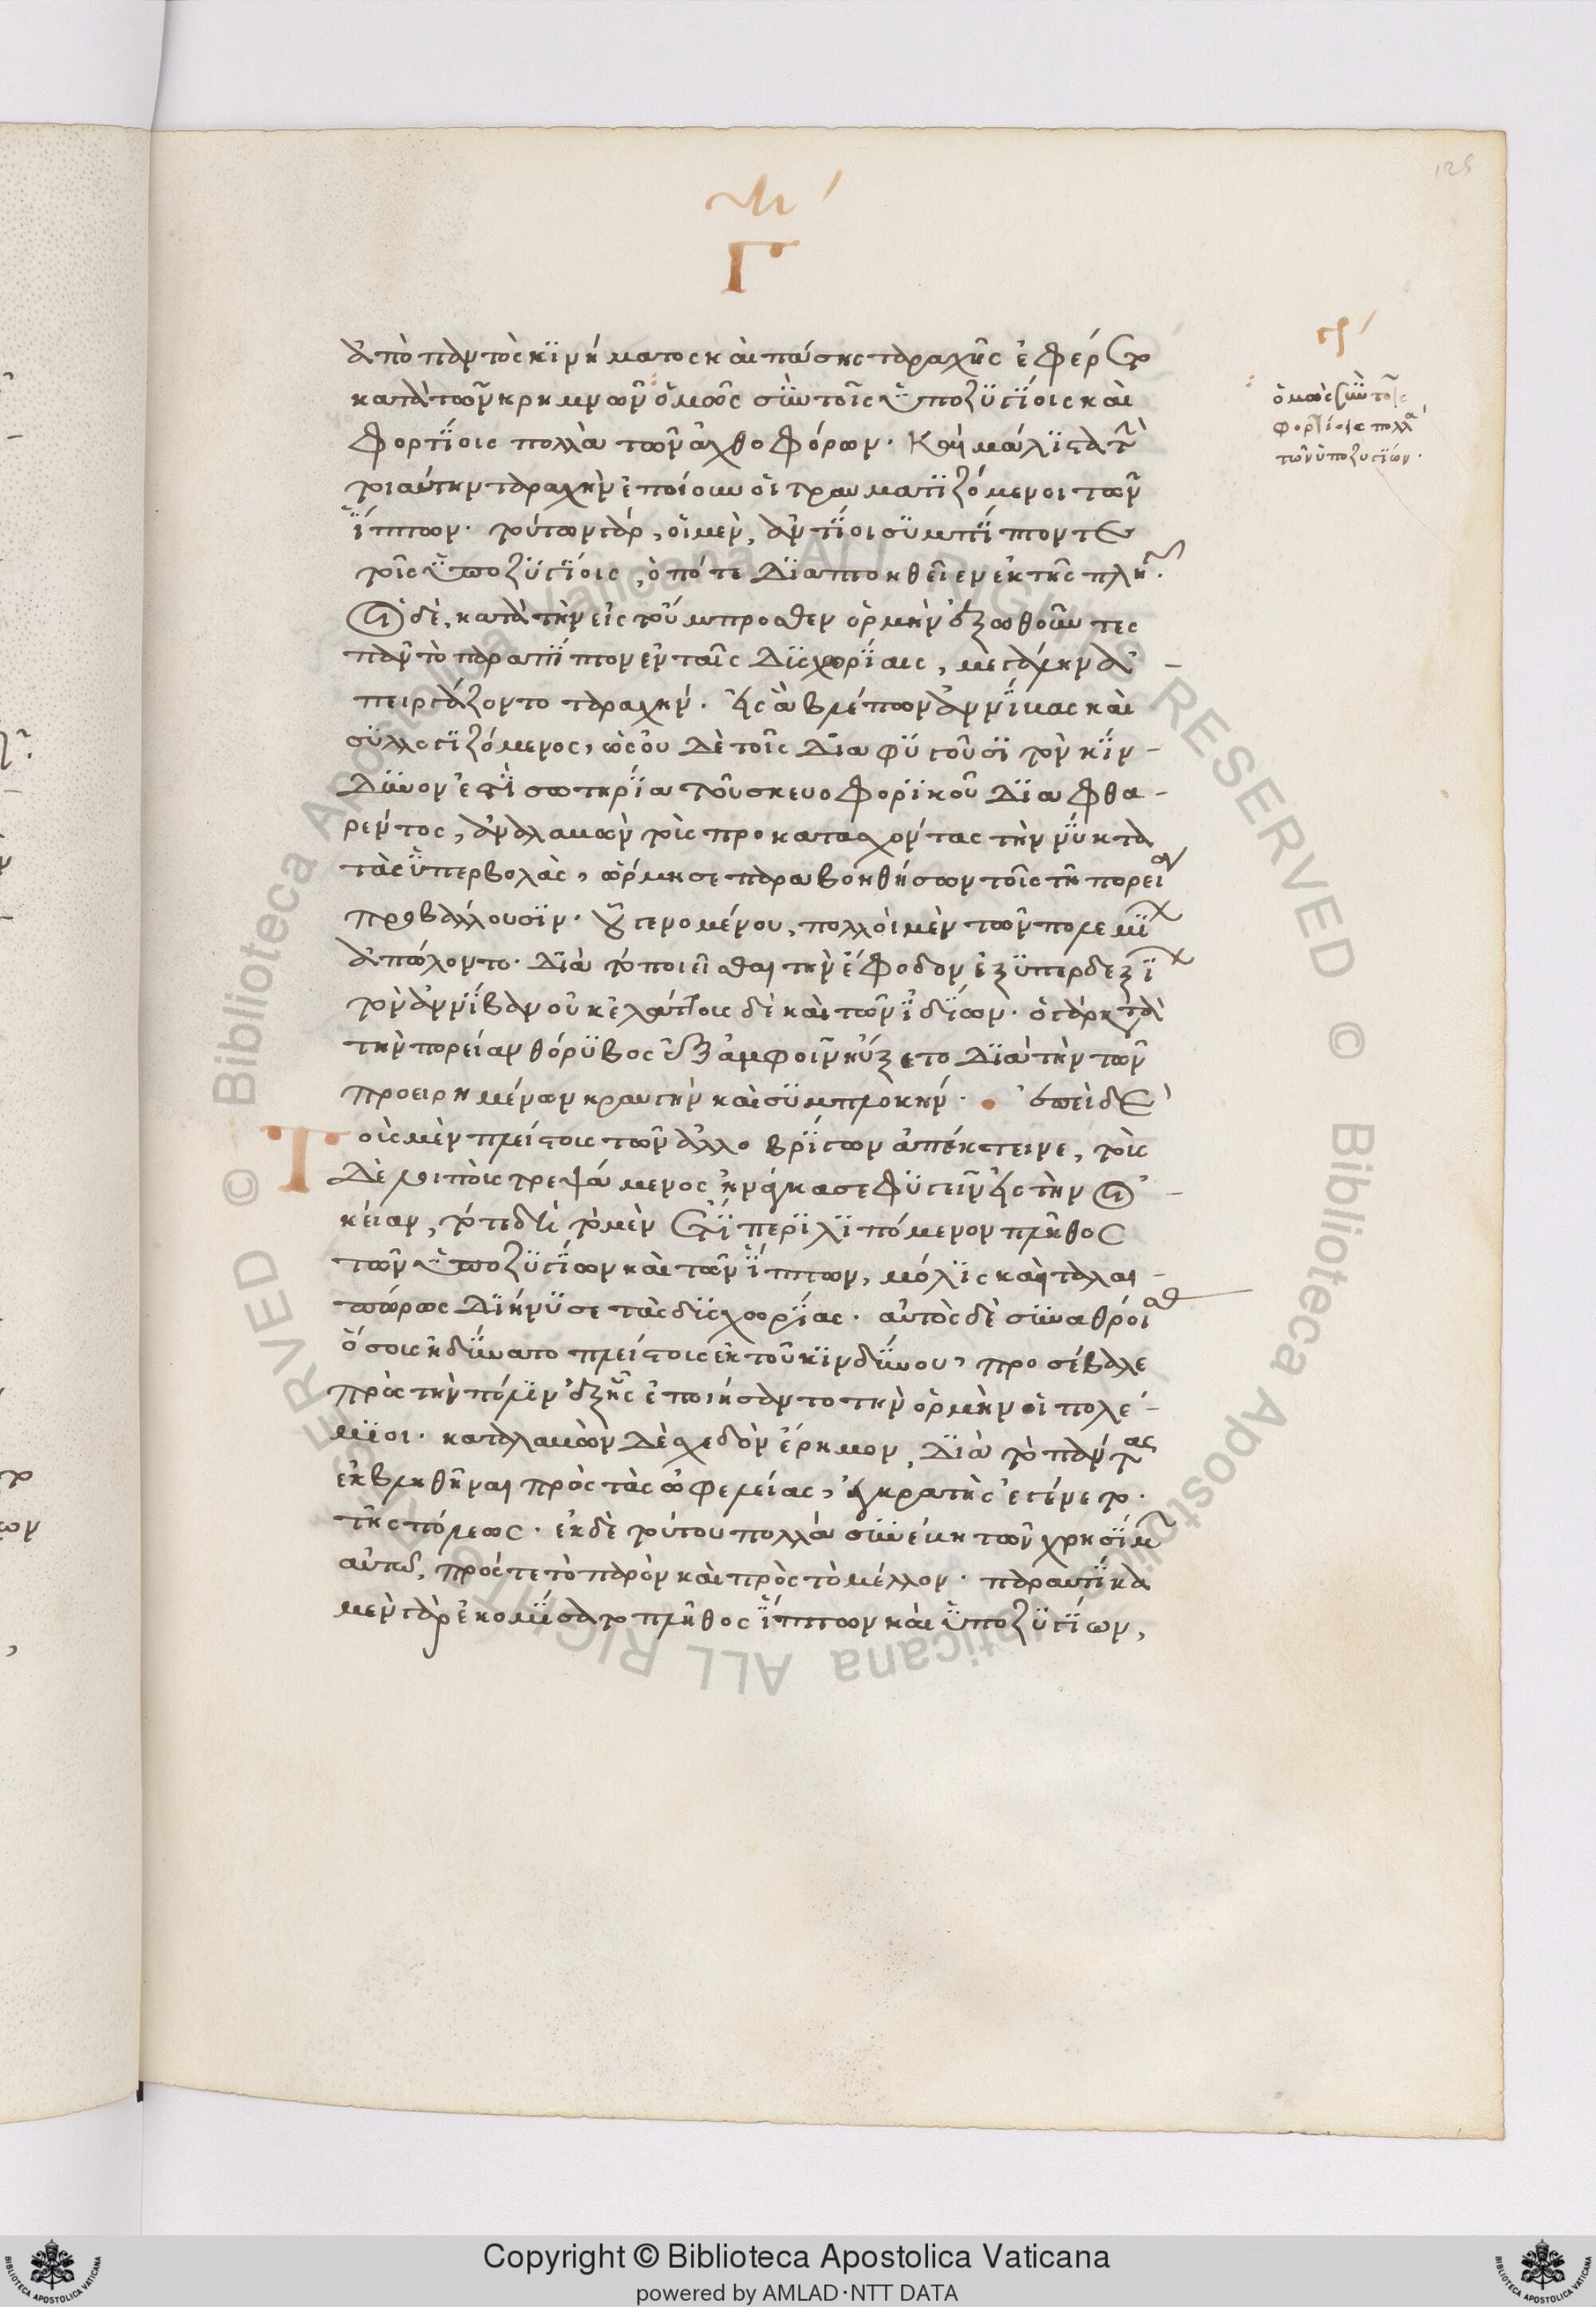 Γ
ἀπὸ παντὸς κινήματος καὶ πάσης ταραχῆς ἐφέρετο
κατὰ τῶν κρημνῶν ὁμῶς σὺν τοῖς ὑποζυγίοις καὶ
φορτίοις πολλὰ τῶν ἀχθοφόρων. Καὶ μάλιστα τὴν
τοιαύτην ταραχὴν ἐποίουν οἱ τραυματιζόμενοι τῶν
ἵππων. τούτων γὰρ, οἱ μὲν, ἀντίοι συμπίπτοντες
τοῖς ὑποζυγίοις, ὁπότε διαπτοηθεῖεν ἐκ τῆς πληγῆς.
οἱ δὲ, κατὰ τὴν εἰς τοὔμπροσθεν ὁρμὴν ἐξωθοῦντες
πᾶν τὸ παραπίπτον ἐν ταῖς δυσχωρίαις, μεγάλην ἀ-
πειργάζοντο ταραχήν. εἰς ἃ βλέπων ἀννίβας καὶ
συλλογιζόμενος, ὡς οὐ δὲ τοῖς διαφυγοῦσι τὸν κίν-
δυνον ἐστὶ σωτηρία τοῦ σκευοφορικοῦ διαφθα-
ρέντος, ἀναλαβὼν τοὺς προκατασχόντας τὴν νύκτα
τὰς ὑπερβολὰς, ὥρμησε παραβοηθήσων τοῖς τῆ πορείαν
προβάλλουσιν. οὗ γενομένου, πολλοὶ μὲν τῶν πολεμίων
ἀπώλοντο. διὰ τὸ ποιεῖσθαι τὴν ἔφοδον ἐξ ὑπερδεξίων
τὸν ἀννίβαν οὐκ ἐλάττους δὲ καὶ τῶν ἰδίων. ὁ γὰρ κατὰ
τὴν πορείαν θόρυβος ἐξ ἀμφοῖν ηὔξετο διὰ τὴν τῶν
προειρημένων κραυγὴν καὶ συμπλοκήν. ἐπεὶ δὲ
Τοὺς μὲν πλείστους τῶν ἀλλοβρίγων ἀπέκτεινε, τοὺς
δὲ λοιποὺς τρεψάμενος ἠνάγκασε φυγεῖν εἰς τὴν οἰ-
κείαν, τότε δὴ τὸ μὲν ἔτι περιλιπόμενον πλῆθος
τῶν ὑποζυγίων καὶ τῶν ἵππων, μόλις καὶ ταλαι-
πώρως διήνυσε τὰς δυσχωρίας. αὐτὸς δὲ συναθροίσας
ὅσους ἠδύνατο πλείστους ἐκ τοῦ κινδύνου, προσέβαλε
πρὸς τὴν πόλιν ἐξ ἧς ἐποιήσαντο τὴν ὁρμὴν οἱ πολέ-
μιοι. καταλαβὼν δὲ σχεδὸν ἔρημον, διὰ τὸ πάντας
ἐκβληθῆναι πρὸς τὰς ὠφελείας, ἐγκρατὴς ἐγένετο.
τῆς πόλεως. ἐκ δὲ τούτου πολλὰ συνέβη τῶν χρησίμων
αὐτῶ, πρός τε τὸ παρὸν καὶ πρὸς τὸ μέλλον. παραυτίκα
μὲν γὰρ ἐκομίσατο πλῆθος ἵππων καὶ ὑποζυγίων,
γρ'
ὁμῶς σὺν τοῖς
φορτίοις πολλὰ
τῶν ὑποζυγίων.